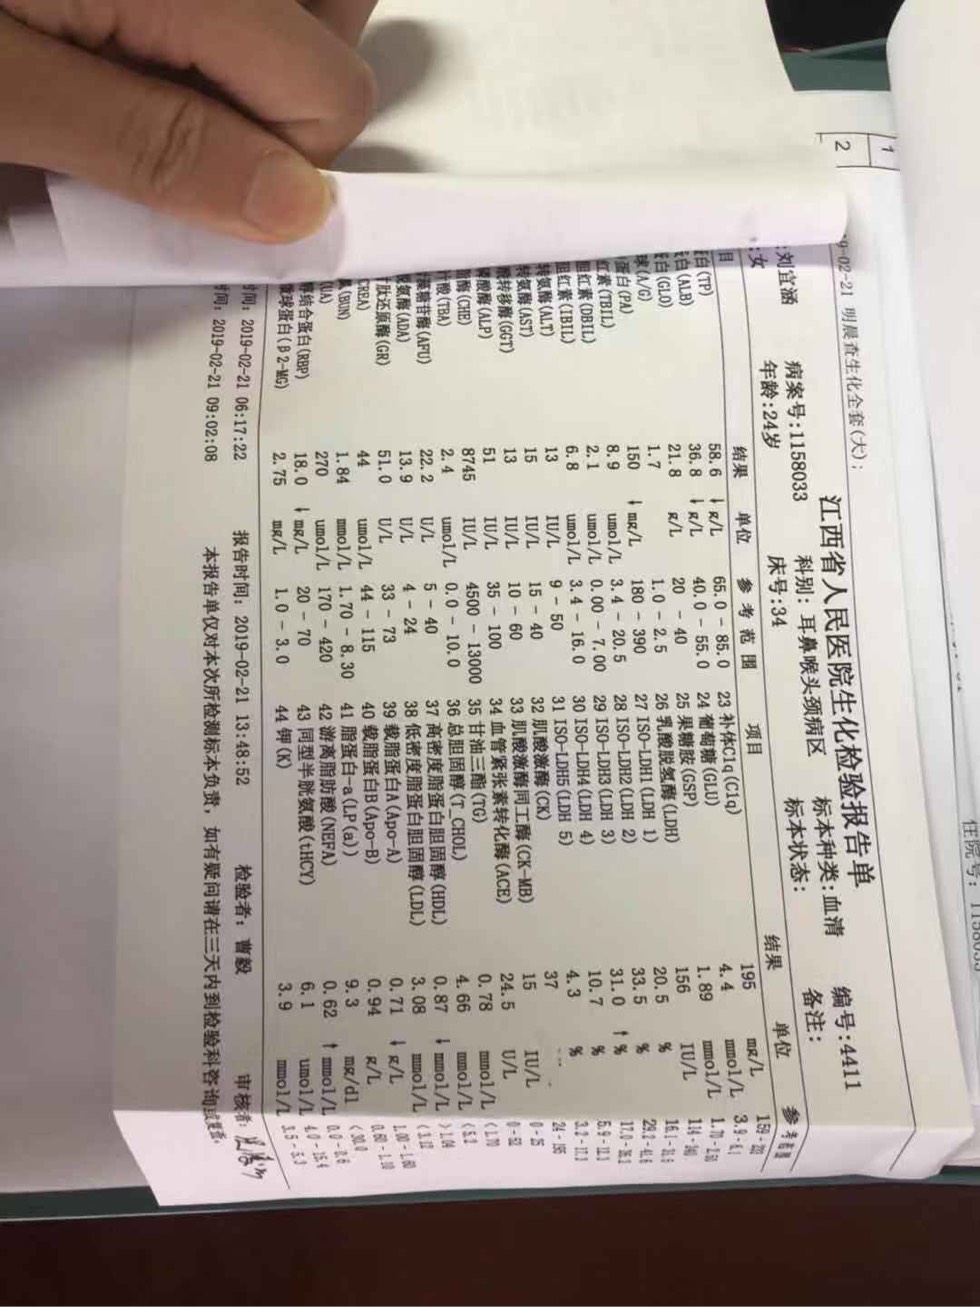 1
2
9-02-21 明晨查生化全套(大):
江西省人民医院生化检验报告单
:刘宜涵 病案号:1158033 科别: 耳鼻喉头颈病区 标本种类:血清 编号:4411
:女 年龄:24岁 床号:34 标本状态: 备注:
目 结果 单位 参考范围 项目 结果 单位 参考范围
白(TP) 58.6 ↓ g/L 65.0 - 85.0 23 补体C1q(C1q) 195 mg/L
白(ALB) 36.8 ↓ g/L 40.0 - 55.0 24 葡萄糖(GLU) 4.4 mmol/L
白(GLO) 21.8 g/L 20 - 40 25 果糖胺(GSP) 1.89 mmol/L
(A/G) 1.7 1.0 - 2.5 26 乳酸脱氢酶(LDH) 156 IU/L
蛋白(PA) 150 ↓ mg/L 180 - 390 27 ISO-LDH1(LDH 1) 20.5 %
红素(TBIL) 8.9 umol/L 3.4 - 20.5 28 ISO-LDH2(LDH 2) 33.5 %
胆红素(DBIL) 2.1 umol/L 0.00 - 7.00 29 ISO-LDH3(LDH 3) 31.0 ↑ %
胆红素(IBIL) 6.8 umol/L 3.4 - 16.0 30 ISO-LDH4(LDH 4) 10.7 %
转氨酶(ALT) 13 IU/L 9 - 50 31 ISO-LDH5(LDH 5) 4.3 %
转氨酶(AST) 15 IU/L 15 - 40 32 肌酸激酶(CK) 37 24 - 195
酰转移酶(GGT) 13 IU/L 10 - 60 33 肌酸激酶同工酶(CK-MB) 15 IU/L 0 - 25
磷酸酶(ALP) 51 IU/L 35 - 100 34 血管紧张素转化酶(ACE) 24.5 U/L 0 - 52
酯酶(CHE) 8745 IU/L 4500 - 13000 35 甘油三酯(TG) 0.78 mmol/L <1.70
汁酸(TBA) 2.4 umol/L 0.0 - 10.0 36 总胆固醇(T_CHOL) 4.66 mmol/L
藻糖苷酶(AFU) 22.2 U/L 5 - 40 37 高密度脂蛋白胆固醇(HDL) 0.87 ↓ mmol/L >1.04
脱氨酶(ADA) 13.9 U/L 4 - 24 38 低密度脂蛋白胆固醇(LDL) 3.08 mmol/L <3.12
肽还原酶(GR) 51.0 U/L 33 - 73 39 载脂蛋白A(Apo-A) 0.71 ↓ g/L 1.00 - 1.60
CREA) 44 umol/L 44 - 115 40 载脂蛋白B(Apo-B) 0.94 g/L 0.60 - 1.10
(BUN) 1.84 mmol/L 1.70 - 8.30 41 脂蛋白-a(LP(a)) 9.3 mg/dl <30.0
(UA) 270 umol/L 170 - 420 42 游离脂肪酸(NEFA) 0.62 ↑ mmol/L 0.0 - 0.6
醇结合蛋白(RBP) 18.0 ↓ mg/L 20 - 70 43 同型半胱氨酸(tHCY) 6.1 umol/L 4.0 - 15.4
微球蛋白(β2-MG) 2.75 mg/L 1.0 - 3.0 44 钾(K) 3.9 mmol/L 3.5 - 5.3
时间: 2019-02-21 06:17:22 报告时间: 2019-02-21 13:48:52 检验者: 曹毅 审核者:
时间: 2019-02-21 09:02:08 本报告单仅对本次所检测标本负责, 如有疑问请在三天内到检验科咨询或复查.
住院号: 1158033